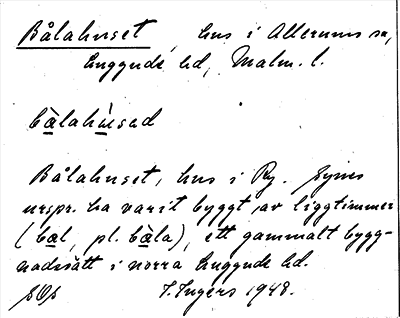 Bålahuset, hus i Allerums sn,
Luggude hd, Malm. l.
bàlahùsəd
Bålahuset, hus i Ry. Synes
urspr. ha varit byggt av liggtimmer
(bål, pl. båla), ett gammalt bygg-
nadssätt i norra Luggude hd.
I. Ingers 1948.